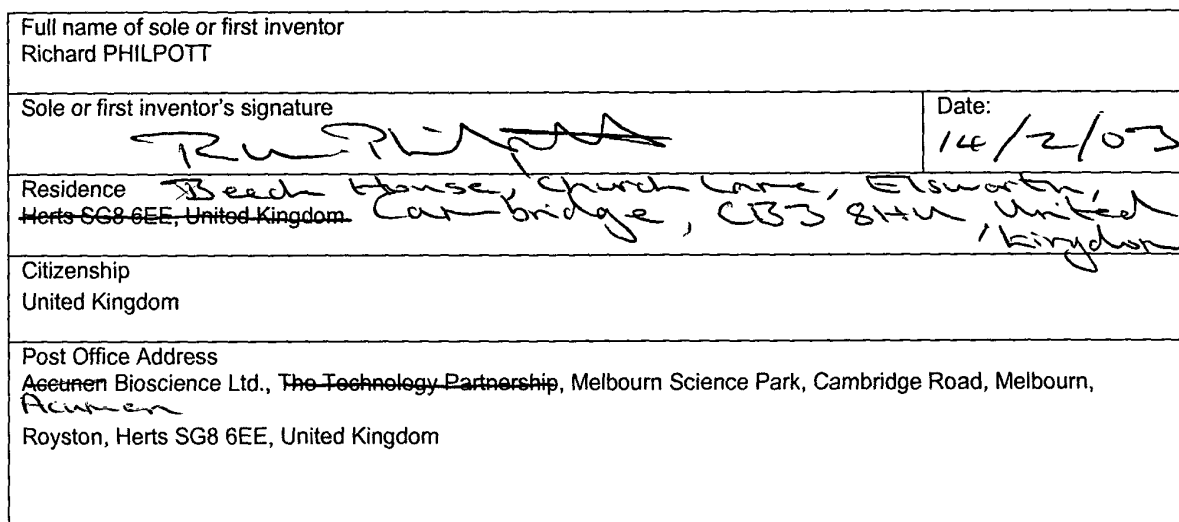 Full name of sole or first inventor
Richard PHILPOTT
Sole or first inventor's signature
Date:
R Philpott
14/2/03
Residence Beech House, Church Lane, Elsworth,
Herts SG8 6EE, United Kingdom Cambridge, CB3 8HU, United
Kingdom
Citizenship
United Kingdom
Post Office Address
Accunen Bioscience Ltd., The Technology Partnership, Melbourn Science Park, Cambridge Road, Melbourn,
Acumen
Royston, Herts SG8 6EE, United Kingdom